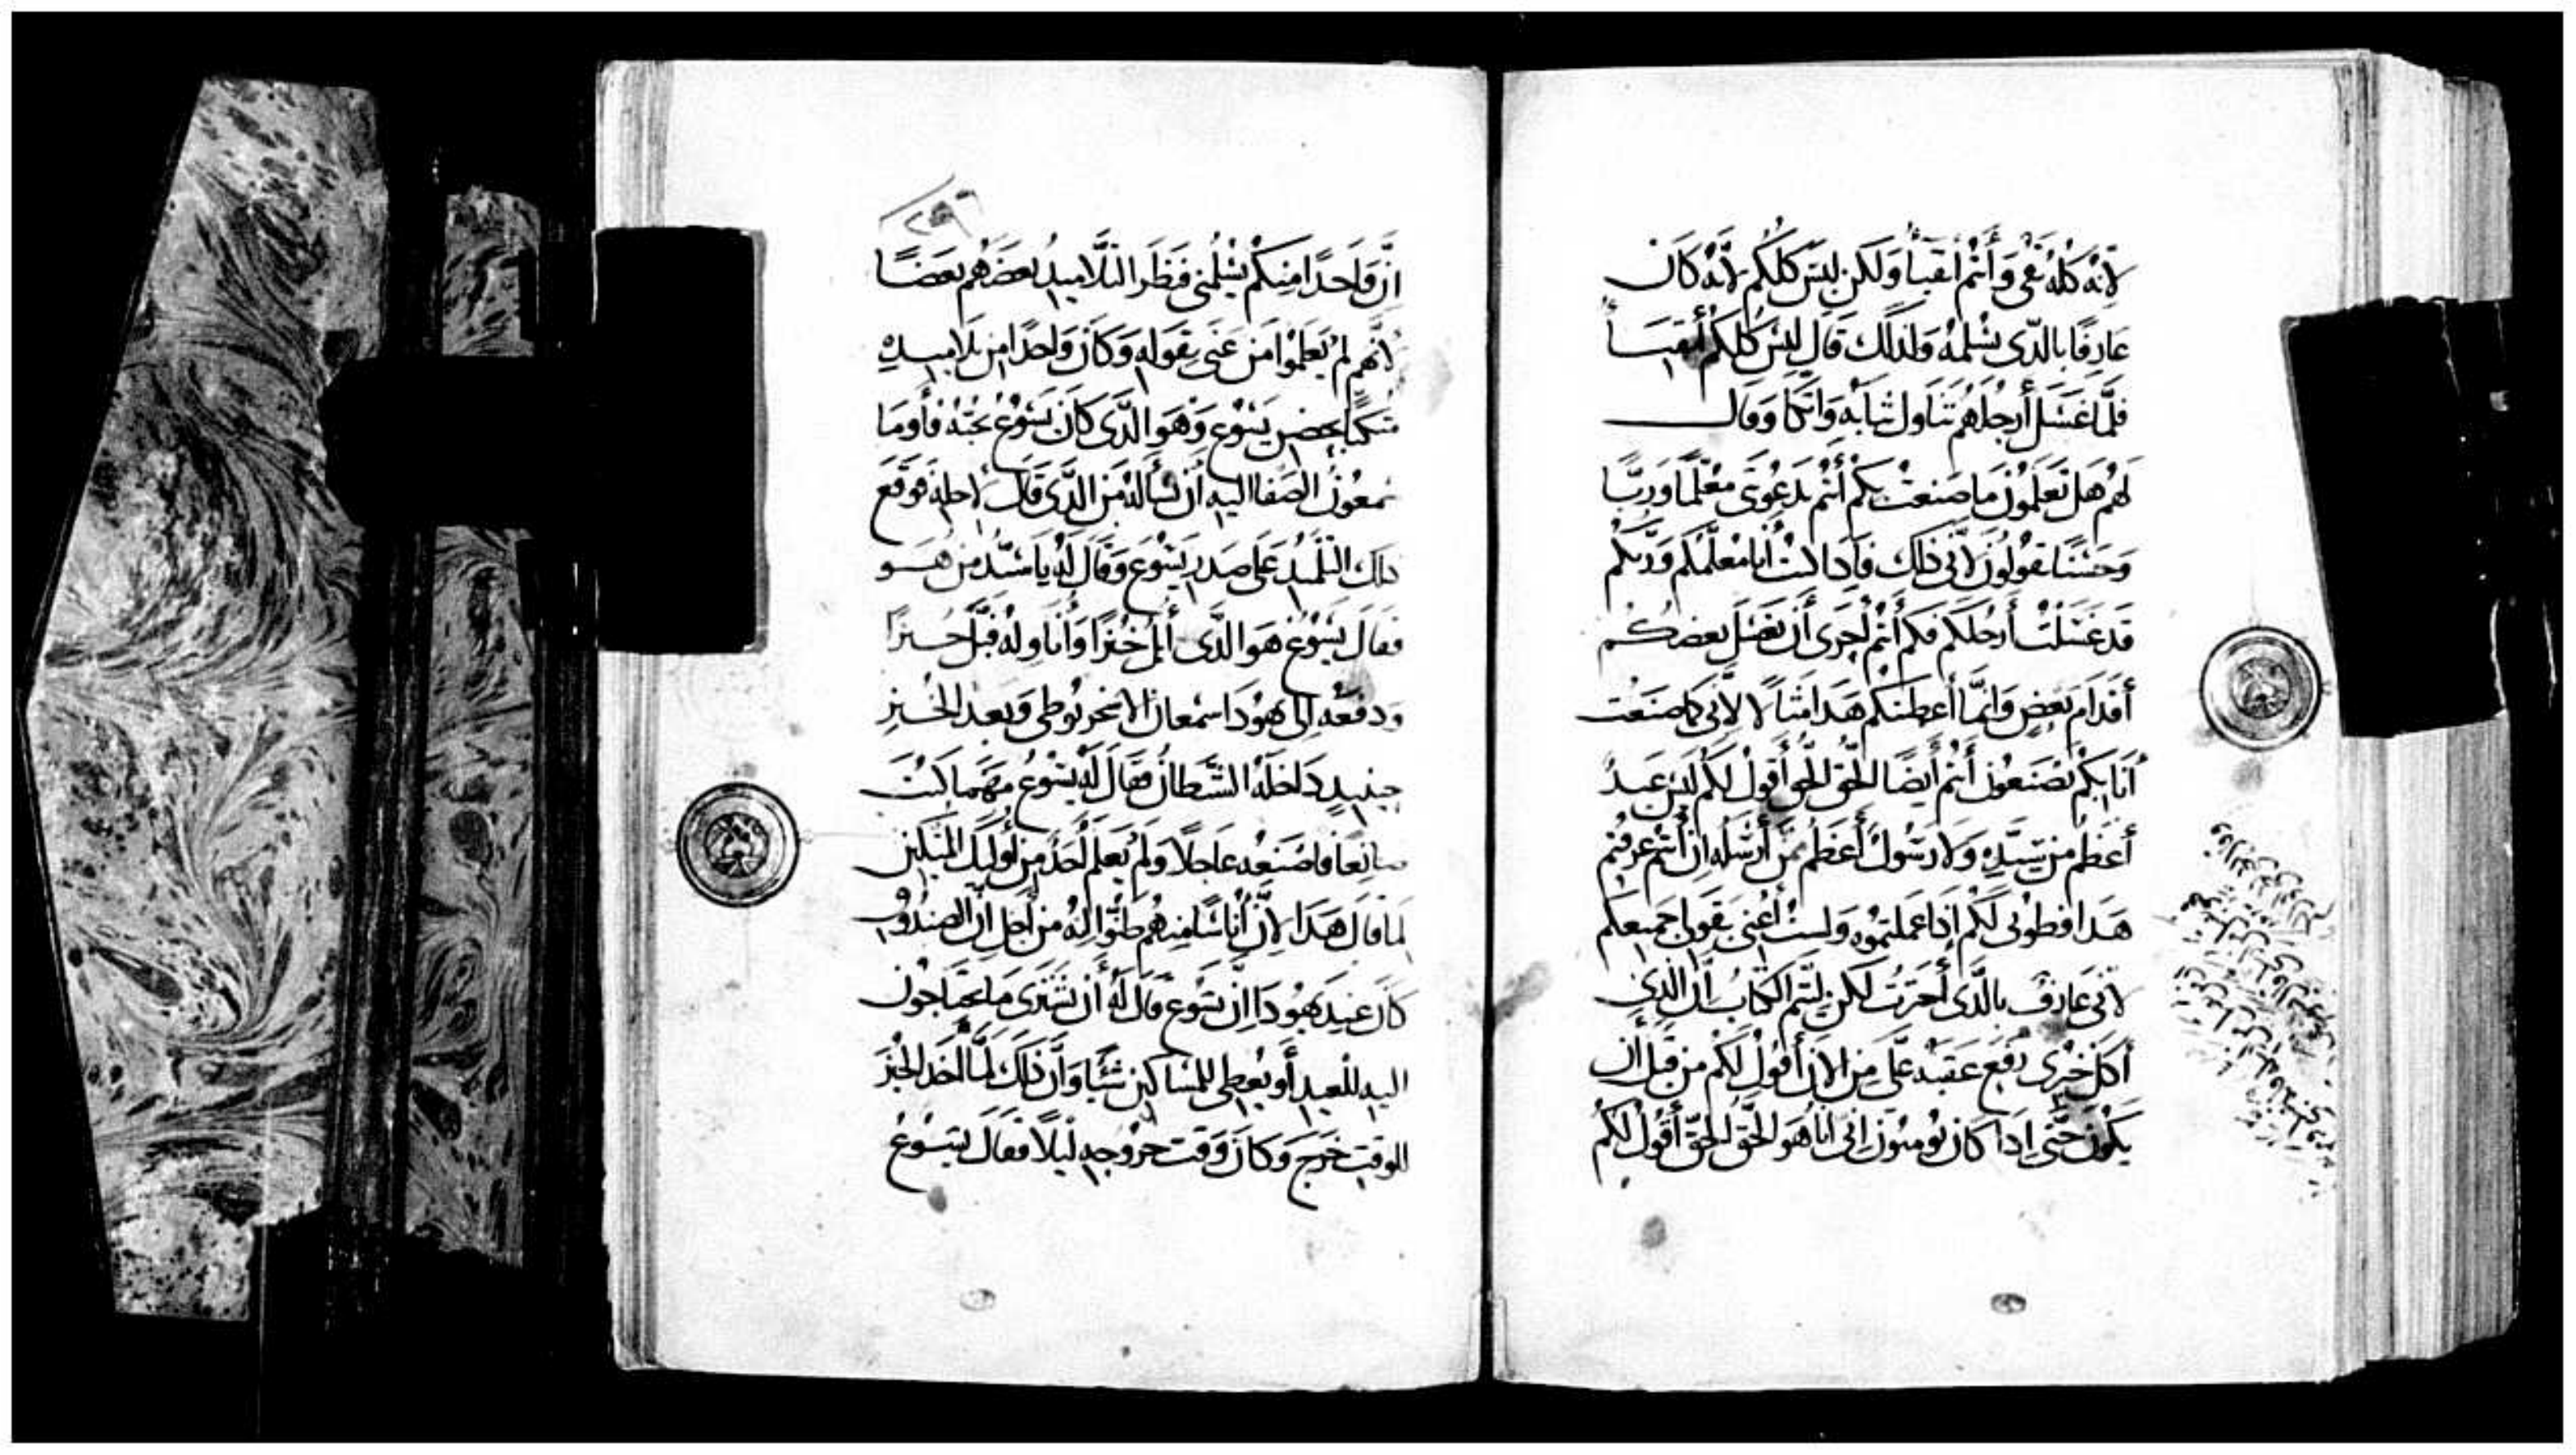 لأنّه كلّه نقي وأنتم أنقياء ولكن ليس كلّكم لأنّه كان
عارفًا بالذي يسلمه ولذلك قال ليس كلكم أنقياء
فلمّا غسل أرجلهم تناول ثيابه واتكا وقال
لهم هل تعلمون ما صنعت بكم أنتم تدعوني معلّمًا وربًّا
وحسنًا تقولون لأني ذلك فإدا كنت أنا معلّمكم وربّكم
قد غسلت أرجلكم فكم أنتم أحرى أن يغسل بعضكم
أقدام بعض وإنّما أعطيتكم هدا مثالًا لأنّي كما صنعت
أنا بكم تصنعون أنتم أيضًا الحقّ الحقّ أقول لكم ليس عبدٌ
أعظم من سيّده ولا رسولٌ أعظم ممّن أرسله إن أنتم عرفتم
هدا فطوبى لكم إدا عملتموه ولست أعني بقولي جميعكم
لأنّي عارف بالذي أخترت لكن ليتم الكتاب إن الذي
أكل خبزي رفع عقبه عليّ من الان أقول لكم من قبل أن
يكون حتّى إدا كان تومنون إنّي أنا هو الحقّ الحقّ أقول لكم
٢٥٩
إنّ واحدًا منكم يسلمني فنظر التلاميد بعضهم بعضًا
لأنهم لم يعلموا من عنى بقوله وكان واحدًا من تلاميده
متكيًا بحضن يسوع وهو الذي كان يسوع يحبّه فأوما
سمعون الصفا إليه أن يسأله من الذي قال لأجله فوقع
دلك التلميد على صدر يسوع وقال له يا سيّد من هو
فقال يسوع هو الذي أبل خبزًا وأناوله فبل خبزًا
ودفعه إلى يهودا سمعان الاسخريوطي وبعد الخبز
حينيد داخله الشيطان فقال له يسوع مهما كنت
صانعًا فاصنعه عاجلًا ولم يعلم أحد من أوليك المتكين
لما قال هدا لأنّ أناسًا منهم ظنّوا إنه من أجل أنّ الصندوق
كان عند يهودا إنّ يسوع قال له أن يشتري ما يحتاجون
إليه للعيد أو يعطي للمساكين شيئًا وأن ذلك لمّا أخد الخبز
للوقت خرج وكان وقت خروجه ليلًا فقال يسوع